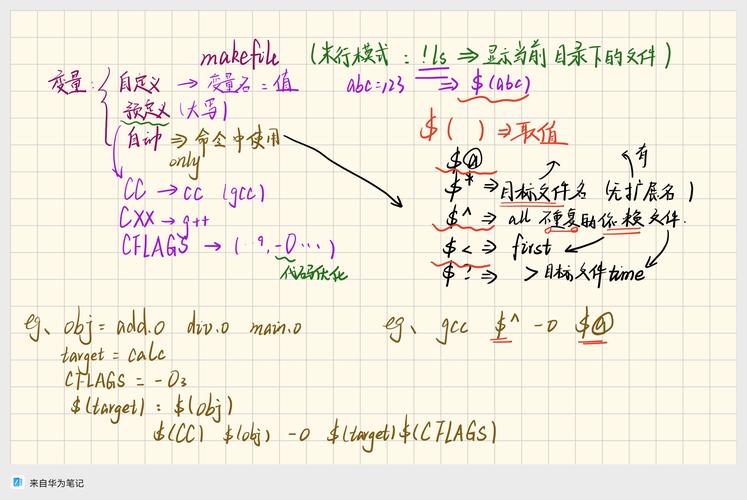 makefile （末行模式：!ls ⇒ 显示当前目录下的文件）
变量： 自定义 → 变量名 = 值 abc=123 ⇒ $(abc)
预定义（大写）
自动 ⇒ 命令中使用 only
$( ) ⇒ 取值
CC → cc (gcc)
CXX → g++
CFLAGS → (··g, -O···)
代码优化
$@ 有
$* ⇒ 目标文件名（无扩展名）
$^ ⇒ all 不重复的依赖文件.
$< ⇒ first
$? ⇒ > 目标文件time
eg、obj = add.o div.o main.o
target = calc
CFLAGS = -O3
$(target) : $(obj)
$(CC) $(obj) -o $(target) $(CFLAGS)
eg、gcc $^ -o $@
来自华为笔记